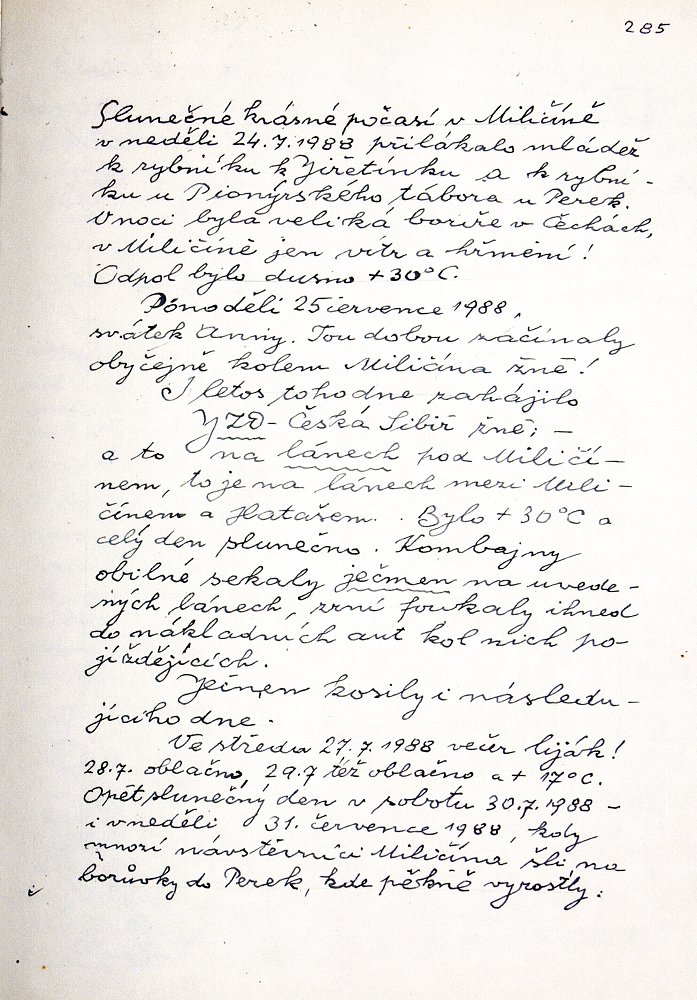 285
Slunečné krásné počasí v Miličíně
v neděli 24.7.1988 přilákalo mládež
k rybníku k Jiřetínku a k rybní-
ku u Pionýrského tábora u Perek.
V noci byla veliká bouře v Čechách,
v Miličíně jen vítr a hřmění!
Odpol bylo dusno +30°C.
Pónoděli 25 července 1988,
svátek Anny. Tou dobou začínaly
obyčejně kolem Miličína žně!
I letos tohodne zahájilo
JZD - Česká Sibiř žně; -
a to na lánech pod Miličí-
nem, to je na lánech mezi Mili-
čínem a Hatašem. . Bylo +30°C a
celý den slunečno. Kombajny
obilné sekaly ječmen na uvede-
ných lánech, zrní foukaly ihned
do nákladních aut kol nich po-
jíždějících.
Ječmen kosily i následu-
jícího dne.
Ve středu 27.7.1988 večer liják!
28.7. oblačno, 29.7 též oblačno a + 17°C.
Opět slunečný den v sobotu 30.7.1988 -
i v neděli 31. července 1988, kdy
mnozí návštěvníci Miličína šli na
borůvky do Perek, kde pěkně vyrostly.